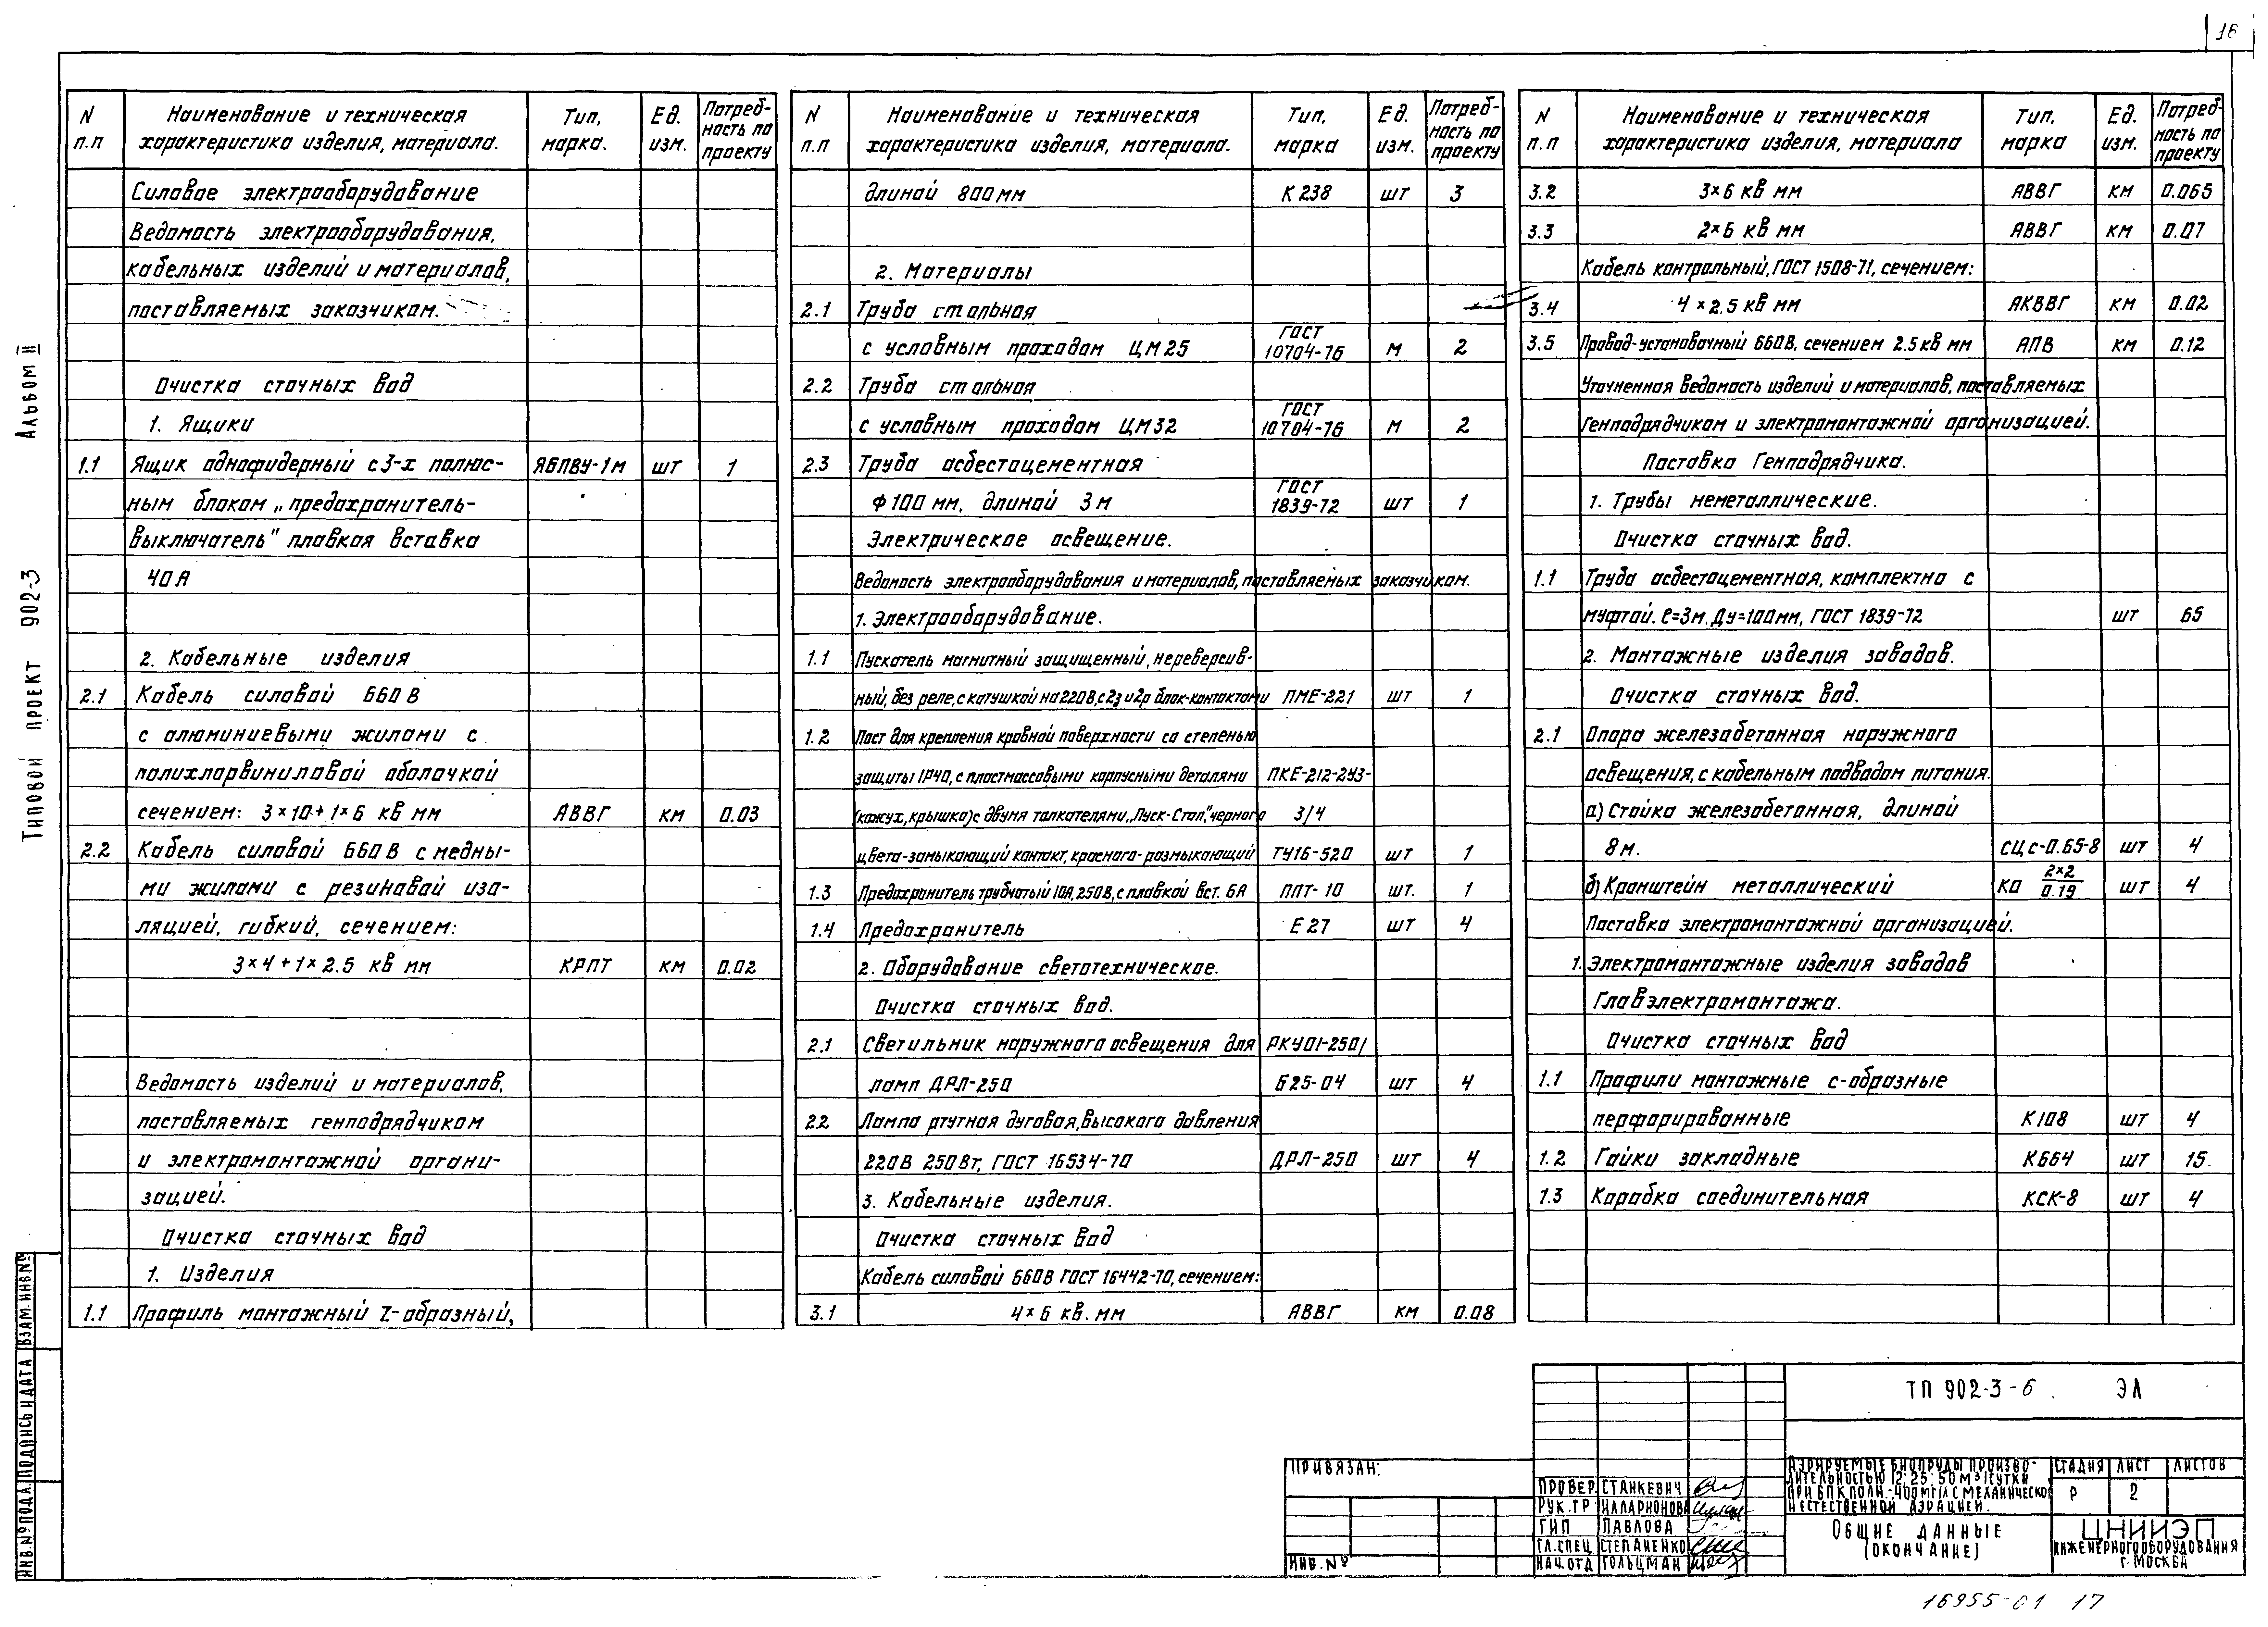 16
Альбом II
Типовой проект 902-3
N п.п | Наименование и техническая характеристика изделия, материала. | Тип, марка. | Ед. изм. | Потреб-ность по проекту
Силовое электрооборудование
Ведомость электрооборудования,
кабельных изделий и материалов,
поставляемых заказчиком.
Очистка сточных вод
1. Ящики
1.1 Ящик однофидерный с 3-х полюс- ЯБПВУ-1м шт 1
ным блоком „предохранитель-
выключатель" плавкая вставка
40А
2. Кабельные изделия
2.1 Кабель силовой 660В
с алюминиевыми жилами с
полихлорвиниловой оболочкой
сечением: 3×10+1×6 кв мм АВВГ км 0.03
2.2 Кабель силовой 660В с медны-
ми жилами с резиновой изо-
ляцией, гибкий, сечением:
3×4+1×2.5 кв мм КРПТ км 0.02
Ведомость изделий и материалов,
поставляемых генподрядчиком
и электромонтажной органи-
зацией.
Очистка сточных вод
1. Изделия
1.1 Профиль монтажный Z-образный,
N п.п | Наименование и техническая характеристика изделия, материала. | Тип, марка | Ед. изм. | Потреб-ность по проекту
длиной 800мм К 238 шт 3
2. Материалы
2.1 Труба стальная
с условным проходом ЦМ25 ГОСТ 10704-76 м 2
2.2 Труба стальная
с условным проходом ЦМ32 ГОСТ 10704-76 м 2
2.3 Труба асбестоцементная
Ф100мм, длиной 3м ГОСТ 1839-72 шт 1
Электрическое освещение.
Ведомость электрооборудования и материалов, поставляемых заказчиком.
1. Электрооборудование.
1.1 Пускатель магнитный защищенный, нереверсив-
ный, без реле, с катушкой на 220В, с 2з и 2р блок-контактами ПМЕ-221 шт 1
1.2 Пост для крепления кровной поверхности со степенью
защиты IP40, с пластмассовыми корпусными деталями ПКЕ-212-2У3-
(кожух, крышка) с двумя толкателями „Пуск-Стоп", черного 3/4
цвета-замыкающий контакт, красного-размыкающий ТУ16-520 шт 1
1.3 Предохранитель трубчатый 10А, 250В, с плавкой вст. 6А ППТ-10 шт. 1
1.4 Предохранитель Е27 шт 4
2. Оборудование светотехническое.
Очистка сточных вод.
2.1 Светильник наружного освещения для РКУ01-250/
ламп ДРЛ-250 Б25-04 шт 4
22 Лампа ртутная дуговая, высокого давления
220В 250Вт, ГОСТ 16534-70 ДРЛ-250 шт 4
3. Кабельные изделия.
Очистка сточных вод
Кабель силовой 660В ГОСТ 16442-70, сечением:
3.1 4×6 кв. мм АВВГ км 0.08
N п.п | Наименование и техническая характеристика изделия, материала | Тип, марка | Ед. изм. | Потреб-ность по проекту
3.2 3×6 кв мм АВВГ км 0.065
3.3 2×6 кв мм АВВГ км 0.07
Кабель контрольный, ГОСТ 1508-71, сечением:
3.4 4×2,5 кв мм АКВВГ км 0.02
3.5 Провод-установочный 660В, сечением 2.5кв мм АПВ км 0.12
Уточненная ведомость изделий и материалов, поставляемых
Генподрядчиком и электромонтажной организацией.
Поставка Генподрядчика.
1. Трубы неметаллические.
Очистка сточных вод.
1.1 Труба асбестоцементная, комплектно с
муфтой. ℓ=3м. Ду=100мм, ГОСТ 1839-72 шт 65
2. Монтажные изделия заводов.
Очистка сточных вод.
2.1 Опора железобетонная наружного
освещения, с кабельным подводом питания.
а) Стойка железобетонная, длиной
8м. СЦс-0.65-8 шт 4
б) Кронштейн металлический ко 2×2/0.19 шт 4
Поставка электромонтажной организацией.
1. Электромонтажные изделия заводов
Главэлектромонтажа.
Очистка сточных вод
1.1 Профили монтажные с-образные
перфорированные К108 шт 4
1.2 Гайки закладные К664 шт 15
1.3 Коробка соединительная КСК-8 шт 4
ИНВ.№ ПОДЛ. ПОДПИСЬ И ДАТА ВЗАМ. ИНВ №
ПРИВЯЗАН:
ИНВ. №
ПРОВЕР. СТАНКЕВИЧ
РУК. ГР. ИЛЛАРИОНОВА
ГИП ПАВЛОВА
ГЛ. СПЕЦ. СТЕПАНЕНКО
НАЧ. ОТД ГОЛЬЦМАН
ТП 902-3-6 ЭЛ
АЭРИРУЕМЫЕ БИОПРУДЫ ПРОИЗВО-
ДИТЕЛЬНОСТЬЮ 12; 25; 50 м³/СУТКИ
ПРИ БПК ПОЛН.-400 мг/л С МЕХАНИЧЕСКОЙ
И ЕСТЕСТВЕННОЙ АЭРАЦИЕЙ.
СТАДИЯ ЛИСТ ЛИСТОВ
Р 2
ОБЩИЕ ДАННЫЕ
(ОКОНЧАНИЕ)
ЦНИИЭП
ИНЖЕНЕРНОГО ОБОРУДОВАНИЯ
г. МОСКВА
16955-01 17